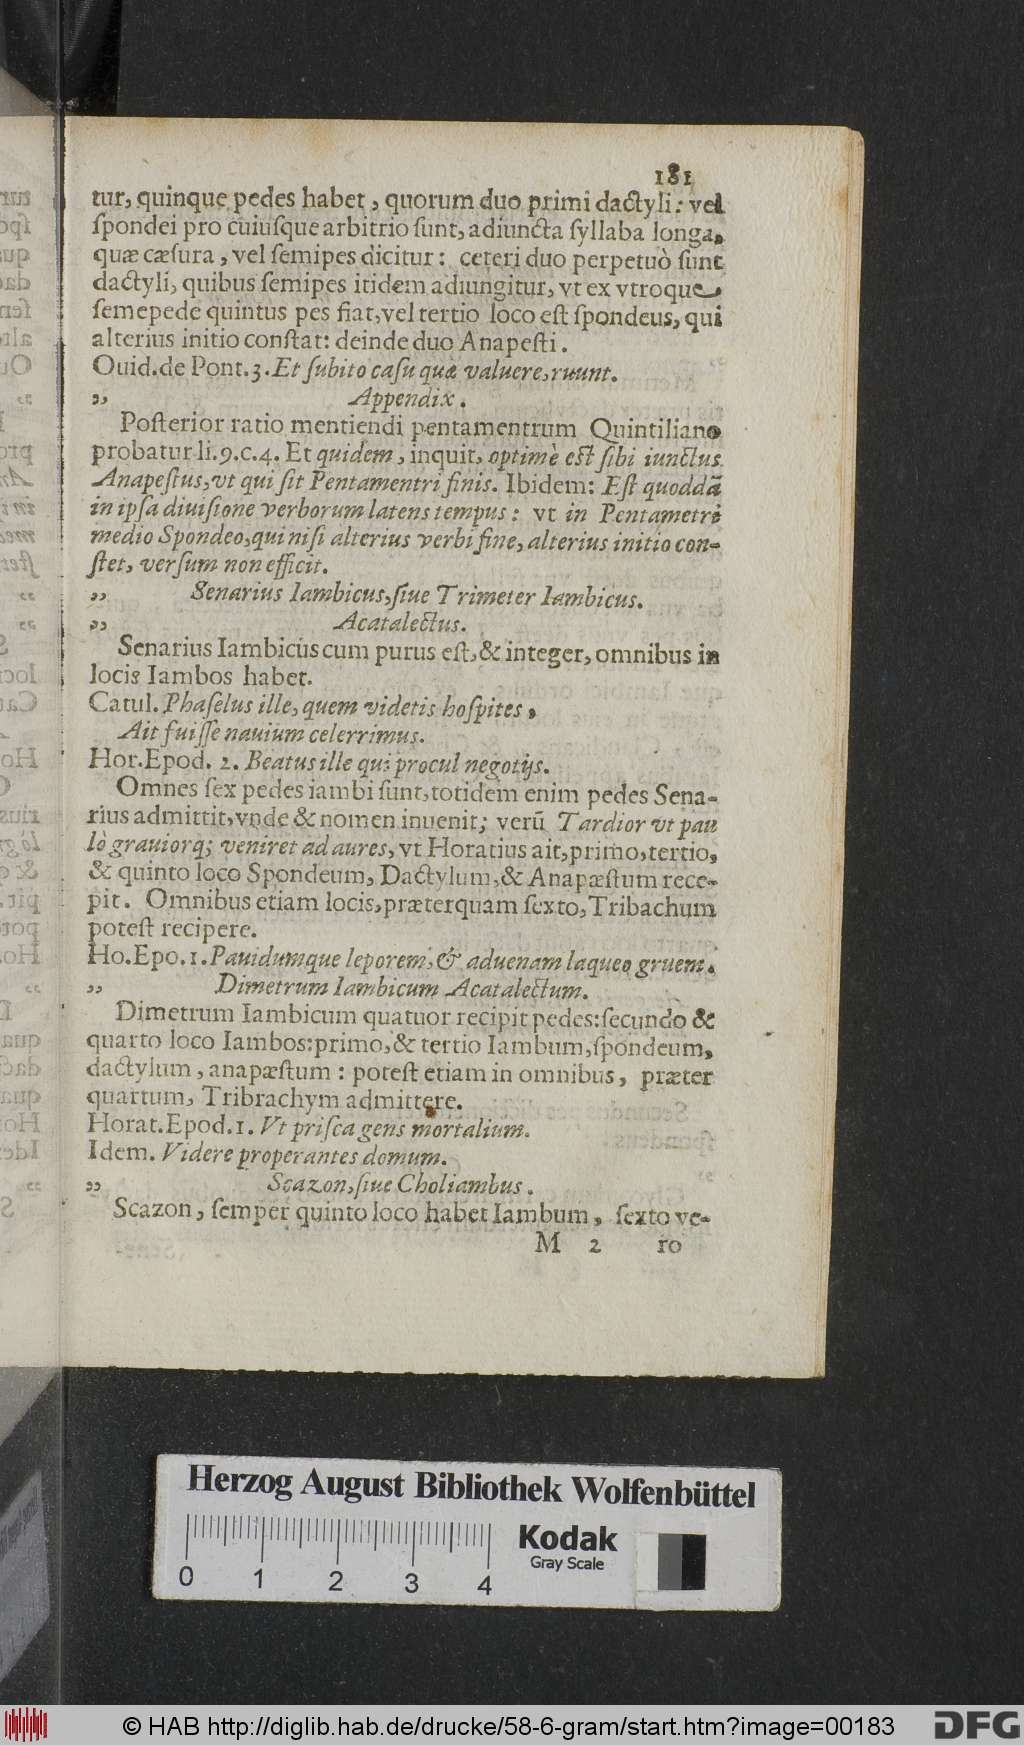 181
tur, quinque pedes habet, quorum duo primi dactyli: vel
ſpondei pro cuiuſque arbitrio ſunt, adiuncta ſyllaba longa,
quæ cæſura, vel ſemipes dicitur: ceteri duo perpetuò ſunt
dactyli, quibus ſemipes itidem adiungitur, vt ex vtroque
ſemepede quintus pes fiat, vel tertio loco eſt ſpondeus, qui
alterius initio conſtat: deinde duo Anapeſti.
Ouid. de Pont. 3. Et ſubito caſu quæ valuere, ruunt.
„ Appendix.
Poſterior ratio mentiendi pentamentrum Quintiliano
probatur li. 9. c. 4. Et quidem, inquit, optimè eſt ſibi iunctus
Anapeſtus, vt qui ſit Pentamentri finis. Ibidem: Eſt quoddã
in ipſa diuiſione verborum latens tempus: vt in Pentametri
medio Spondeo, qui niſi alterius verbi fine, alterius initio con-
ſtet, verſum non efficit.
„ Senarius Iambicus, ſiue Trimeter Iambicus.
„ Acatalectus.
Senarius Iambicus cum purus eſt, & integer, omnibus in
locis Iambos habet.
Catul. Phaſelus ille, quem videtis hoſpites,
Ait fuiſſe nauium celerrimus.
Hor. Epod. 2. Beatus ille qui procul negotijs.
Omnes ſex pedes iambi ſunt, totidem enim pedes Sena-
rius admittit, vnde & nomen inuenit; verũ Tardior vt pau
lò grauiorq; veniret ad aures, vt Horatius ait, primo, tertio,
& quinto loco Spondeum, Dactylum, & Anapæſtum rece-
pit. Omnibus etiam locis, præterquam ſexto, Tribachum
poteſt recipere.
Ho. Epo. 1. Pauidumque leporem, & aduenam laqueo gruem.
„ Dimetrum Iambicum Acatalectum.
Dimetrum Iambicum quatuor recipit pedes: ſecundo &
quarto loco Iambos: primo, & tertio Iambum, ſpondeum,
dactylum, anapæſtum: poteſt etiam in omnibus, præter
quartum, Tribrachym admittere.
Horat. Epod. 1. Vt priſca gens mortalium.
Idem. Videre properantes domum.
„ Scazon, ſiue Choliambus.
Scazon, ſemper quinto loco habet Iambum, ſexto ve-
M 2 ro
Herzog August Bibliothek Wolfenbüttel
Kodak
Gray Scale
0 1 2 3 4
© HAB http://diglib.hab.de/drucke/58-6-gram/start.htm?image=00183
DFG